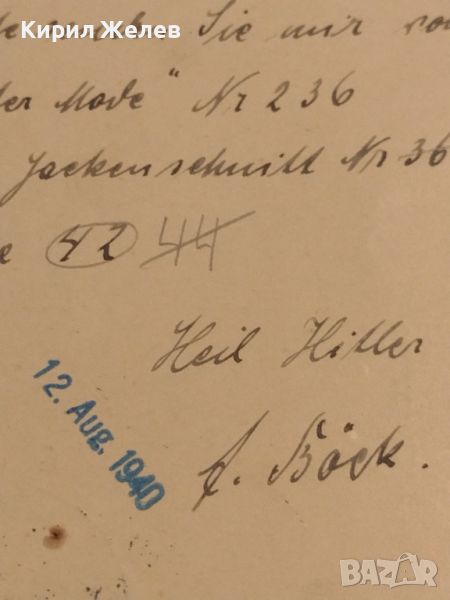 Кирил Желев
Sie mir
Mode" Nr 236
Jackenschnitt Nr 36
42 44
Heil Hitler
12. Aug. 1940
F. Böck.
BAZAR